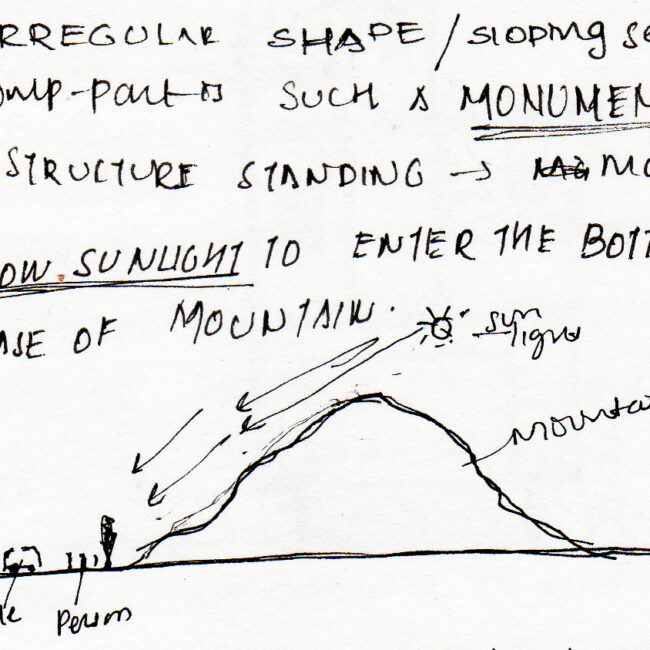 RREGULAR SHAPE / SLOPING SE
SUCH AS MONUMEN
STRUCTURE STANDING → MO
OW SUNLIGHT TO ENTER THE BOTT
ASE OF MOUNTAIN.
sun
light
Mounta
le
Person